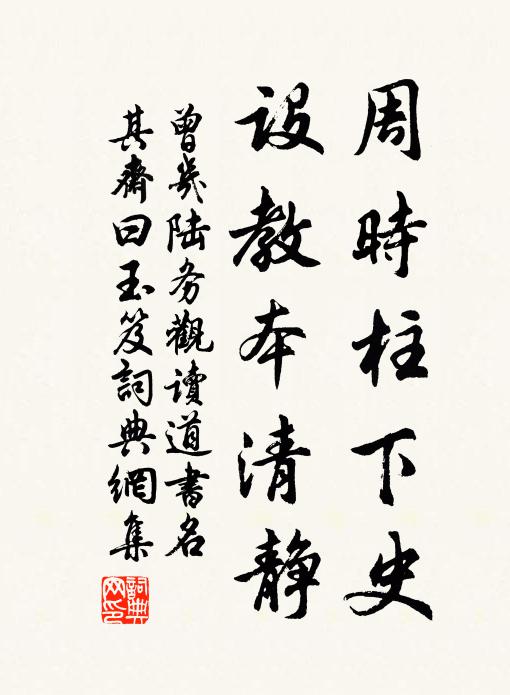 周時柱下史
設教本清静
曾幾陆务觀讀道書名
其齋曰玉笈詞典網集
詞典网印